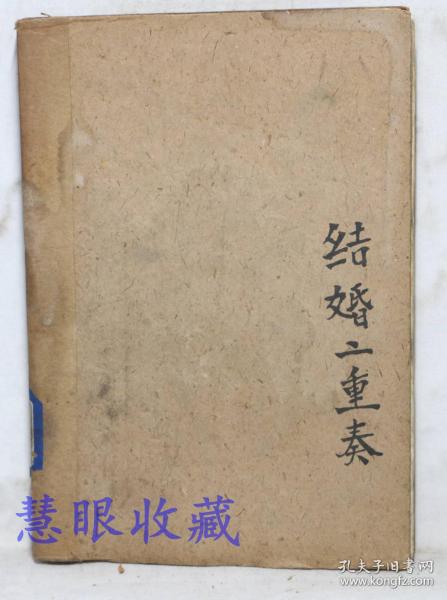 结婚二重奏
慧眼收藏
孔夫子旧书网
www.kongfz.com